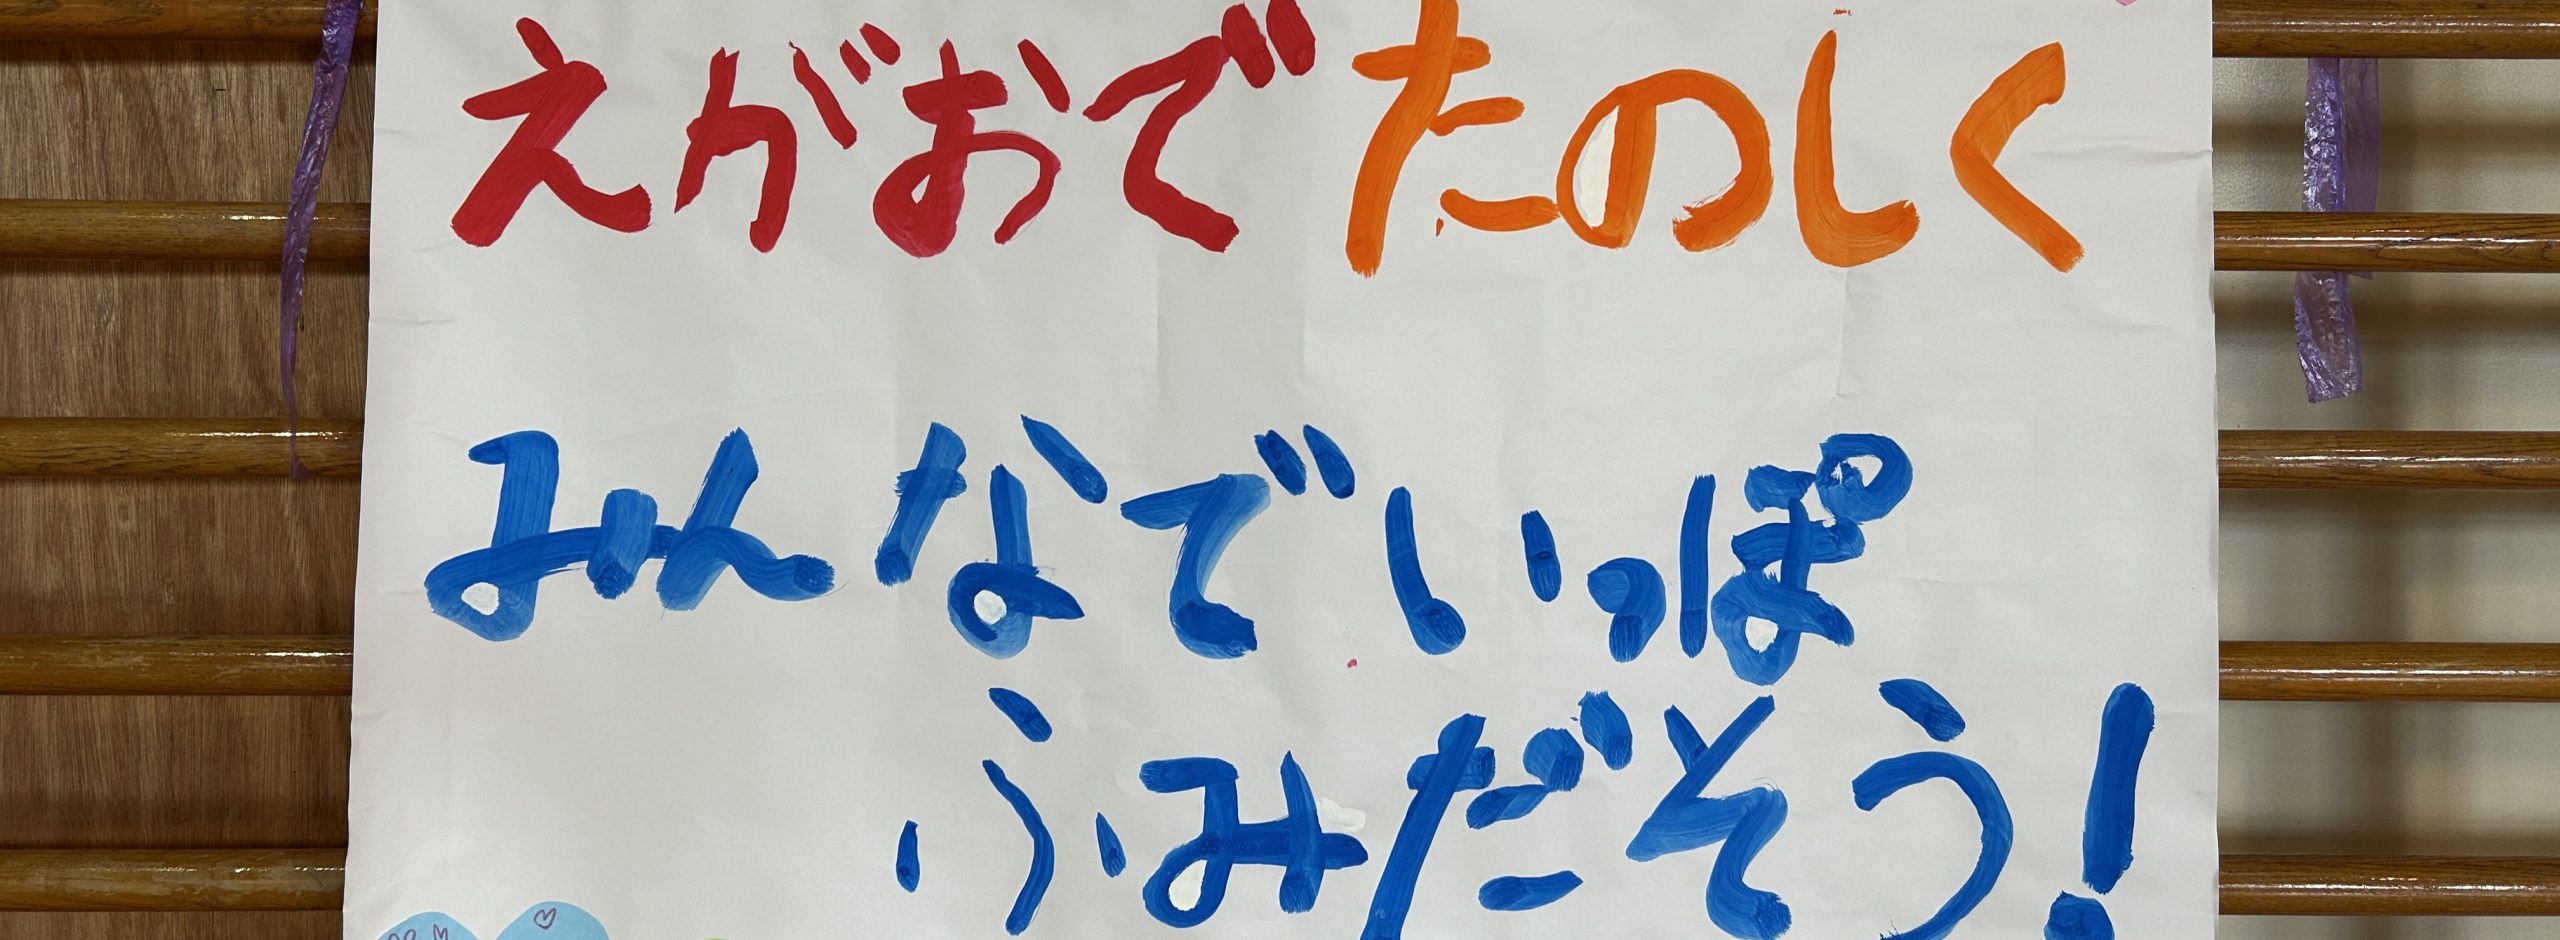 えがおで たのしく
みんなで いっぽ
ふみだそう!